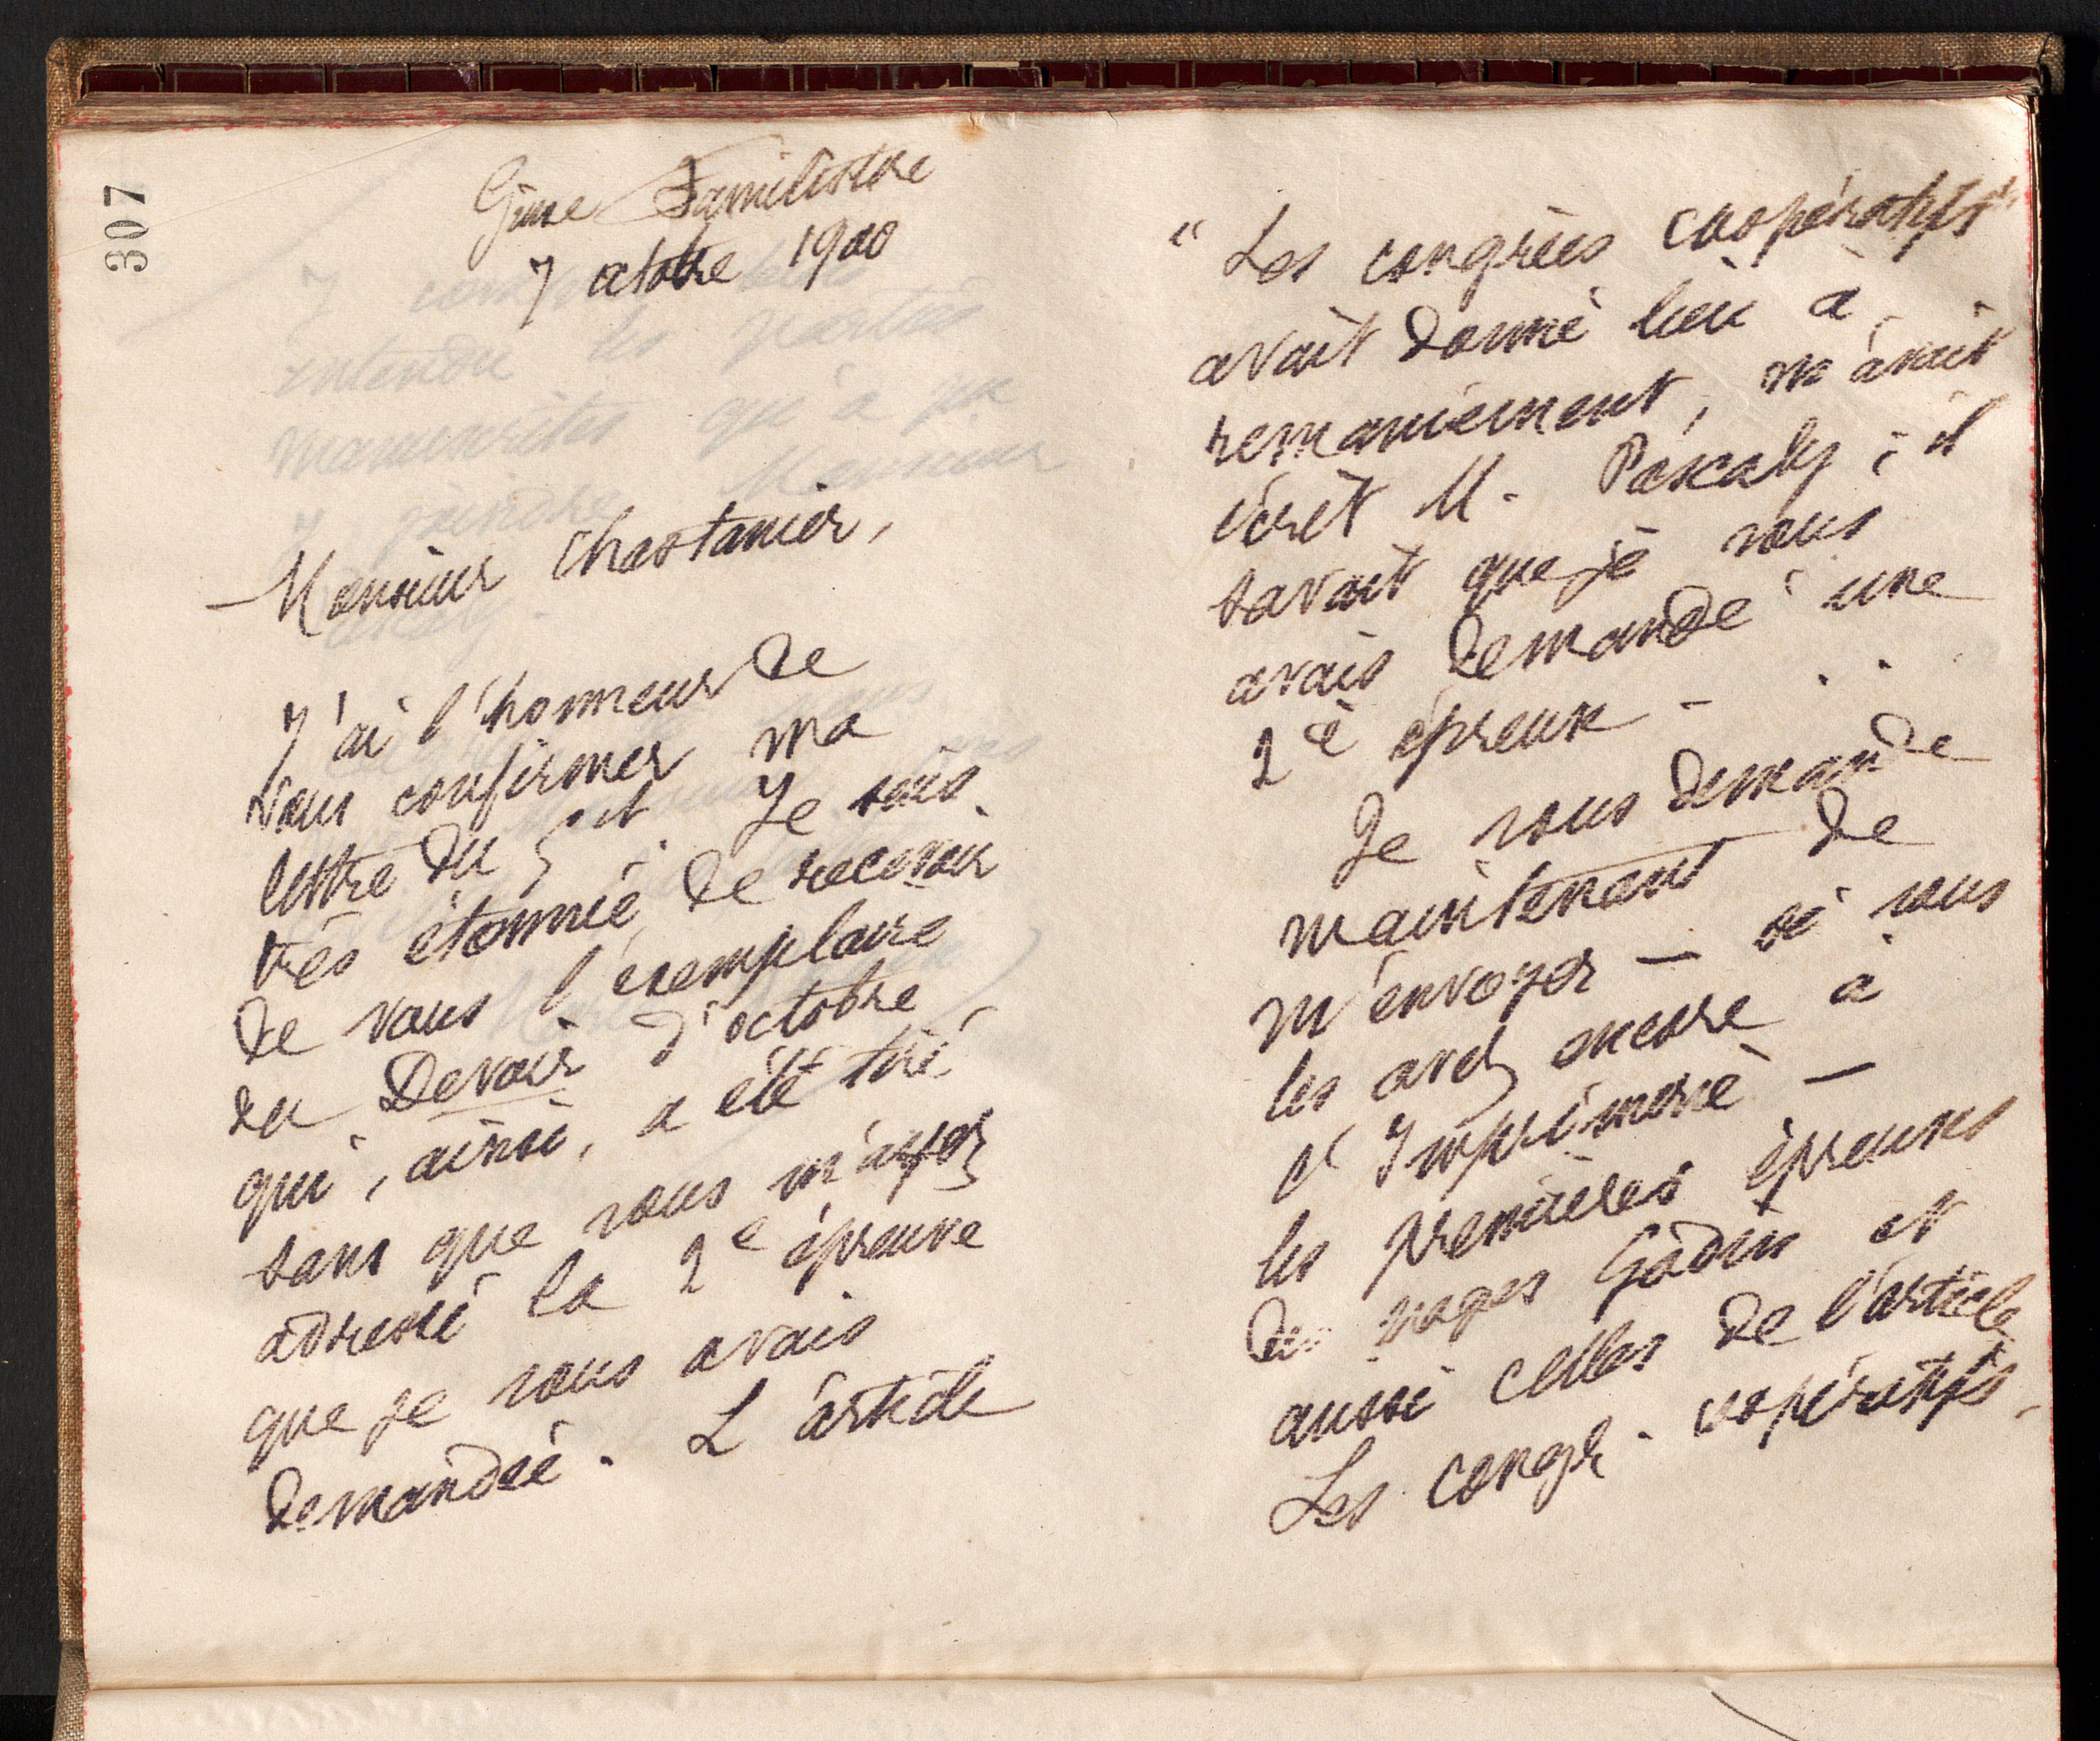 307
Guise Familistère
7 octobre 1900
Monsieur Chastanier,
J'ai l'honneur de
vous confirmer ma
lettre du 5 ct. Je suis
très étonnée de recevoir
de vous l'exemplaire
du Devoir d'octobre
qui, ainsi, a été tiré
sans que vous m'ayez
adressé la 2e épreuve
que je vous avais
demandée. L'article
"Les congrès coopératifs"
avait donné lieu à
remaniement, m'avait
écrit M. Pascaly ; il
savait que je vous
avais demandé une
2e épreuve -
Je vous demande
maintenant de
m'envoyer — si vous
les avez encore à
l'Imprimerie —
les premières épreuves
des pages Godin et
aussi celles de l'article
Les congr. coopératifs.